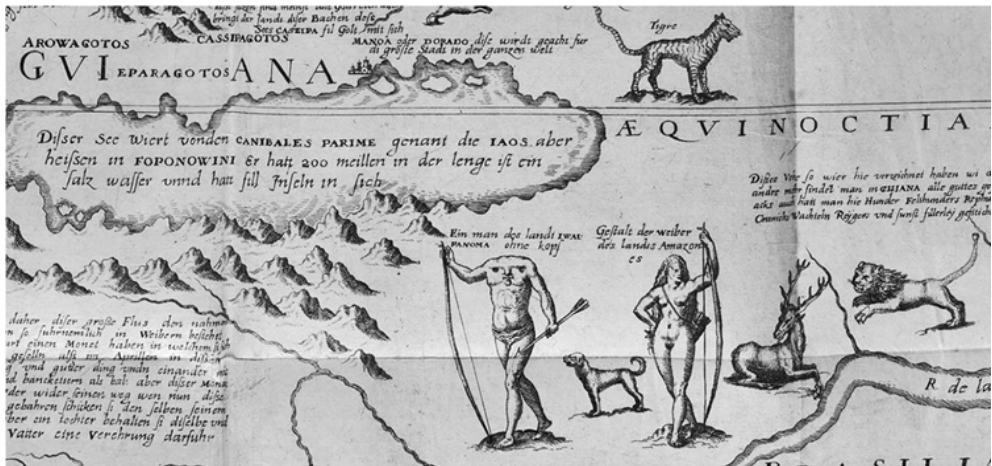 bringt der landt diser Bachen dese
Sees CASSIPA fil Golt mit sich
AROWAGOTOS
CASSIPAGOTOS
MANOA oder DORADO dise wirdt geacht fur
di gröste Stadt in der gantzen welt
GVIANA
EPARAGOTOS
Tigre
ÆQVINOCTIA
Diser See wiert vonden CANIBALES PARIME genant die IAOS aber
heissen in FOPONOWINI Er hatt 200 meillen in der lenge ist ein
salz wasser vnnd hatt fill Inseln in sich
so wier hie verzeichnet haben wi a
andre mehr findet man in GUIANA alle guttes
auch hatt man hie Hunder Felthunders
Wachteln Reygers vnd sunst fillerley
Ein man des landt IWAI
PANOMA ohne kopf
Gestalt der weiber
des landts Amazon
es
daher diser große Flus den nahme
so fuhrnemlich in Weibern besteht
einen Monet haben in welchem sich
geselln alss im Aprillen in
vnd gutter ding vndn einander
banckettiern als balt aber diser Mona
wider seinen weg wen nun dise
gebahren schicken si den selben seinem
ein tochter behalten si diselbe vnd
Vatter eine Verehrung darfuhr
R de la
BRASILIA